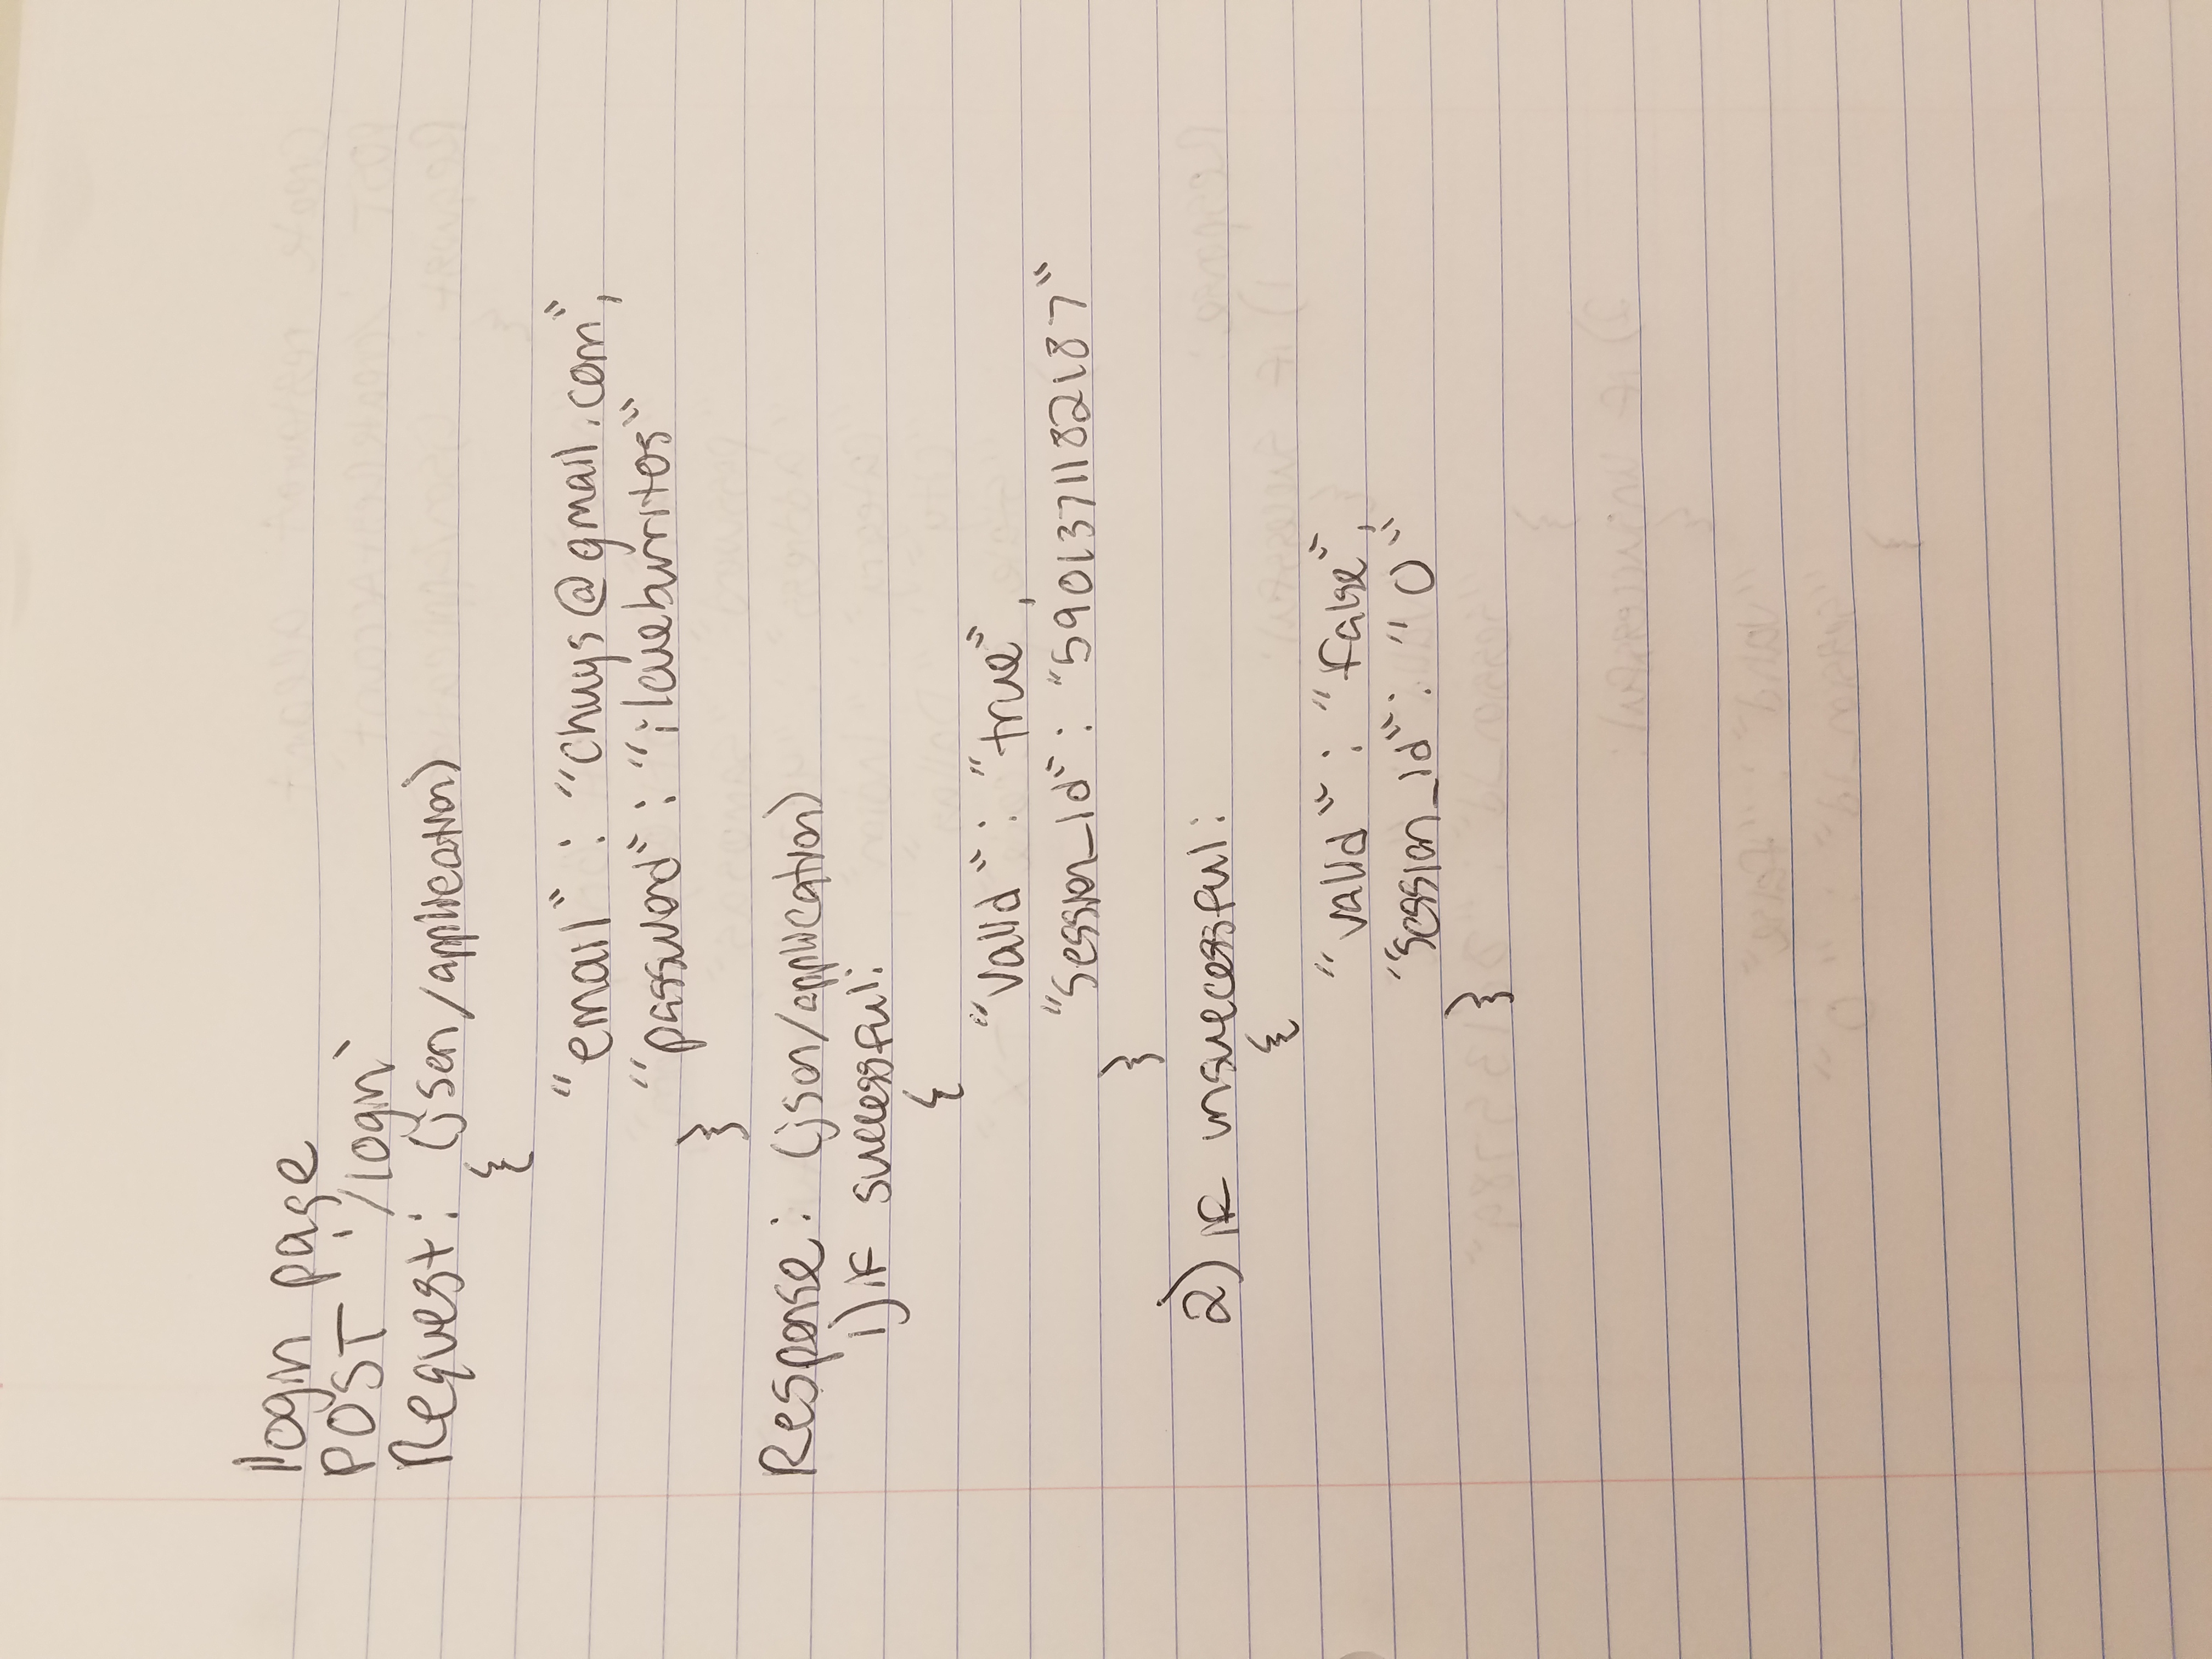 login page
POST '/login'
Request: (json/application)
{
"email" : "chuys@gmail.com",
"password" : "iloveburritos"
}
Response: (json/application)
1) IF successful:
{
"valid" : "true",
"session_id" : "5901371182187"
}
2) IF unsuccessful:
{
"valid" : "false",
"session_id" : "0"
}